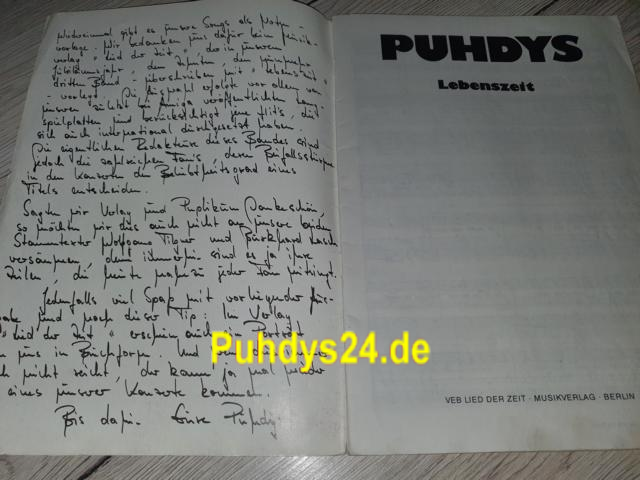 gibt es unsere Songs als Noten-
vorlage. Wir bedanken uns dafür beim Musik-
verlag "Lied der Zeit", der in unserem
Jubiläumsjahr, dem zehnten, den
dritten Band, überschrieben mit "Lebenszeit"
- vorlegt. Die Auswahl erfolgte vor allem von
unseren zuletzt bei Amiga veröffentlichten Lang-
spielplatten und berücksichtigt jene Hits, die
sich auch international durchgesetzt haben.
Die eigentlichen Redakteure dieses Bandes sind
jedoch die zahlreichen Fans, deren Beifallsstürme
in den Konzerten den Beliebtheitsgrad eines
Titels entscheiden.
Sagten wir Verlag und Publikum Dankeschön,
so möchten wir dies auch nicht an unsere beiden
Stammtexter Wolfgang Tilgner und Burkhard Lasch
versäumen, denn immerhin sind es ja ihre
Zeilen, die heute nahezu jeder Fan mitsingt.
Jedenfalls viel Spaß mit vorliegender Aus-
gabe und noch dieser Tip: Im Verlag
"Lied der Zeit" erschien auch ein Porträt
von uns in Buchform. Und wem
nicht reicht, der kann ja mal wieder
eines unserer Konzerte kommen.
Bis dahin - Eure Puhdys
PUHDYS
Lebenszeit
VEB LIED DER ZEIT · MUSIKVERLAG · BERLIN
Puhdys24.de